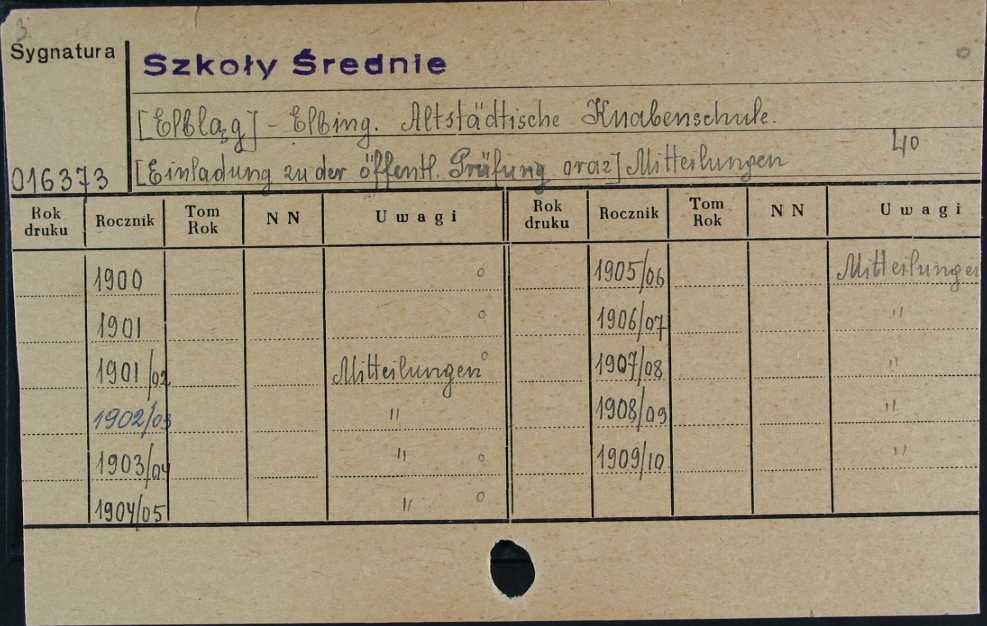 3.
Sygnatura
Szkoły Średnie
[Elbląg] - Elbing. Altstädtische Knabenschule.
40
016373
[Einladung zu der öffentl. Prüfung oraz] Mitteilungen
Rok druku Rocznik Tom Rok N N Uwagi Rok druku Rocznik Tom Rok N N Uwagi
1900 o 1905/06 Mitteilungen
1901 o 1906/07 "
1901/02 Mitteilungen o 1907/08 "
1902/03 " 1908/09 "
1903/04 " o 1909/10 "
1904/05 " o